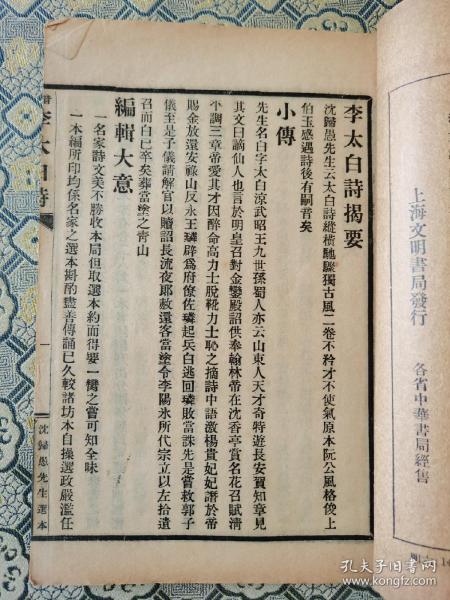 李太白詩揭要
沈歸愚先生云太白詩縱橫馳驟獨古風二卷不矜才不使氣原本阮公風格俊上
伯玉感遇詩後有嗣音矣
小傳
先生名白字太白涼武昭王九世孫蜀人亦云山東人天才奇特遊長安賀知章見
其文曰謫仙人也言於明皇召對金鑾殿詔供奉翰林帝在沈香亭賞名花召賦清
平調三章帝愛其才因醉命高力士脫靴力士恥之摘詩中語激楊貴妃妃譖於帝
賜金放還安祿山反永王璘辟爲府僚佐璘起兵白逃回璘敗當誅先是嘗救郭子
儀至是子儀請解官以贖詔長流夜郎赦還客當塗令李陽氷所代宗立以左拾遺
召而白已卒矣葬當塗之青山
編輯大意
一名家詩文美不勝收本局但取選本約而得要一臠之嘗可知全味
一本編所印均係名家之選本斟酌盡善傳誦已久較諸坊本自操選政嚴濫任
李太白詩
一
沈歸愚先生選本
上海文明書局發行
各省中華書局經售
孔夫子旧书网